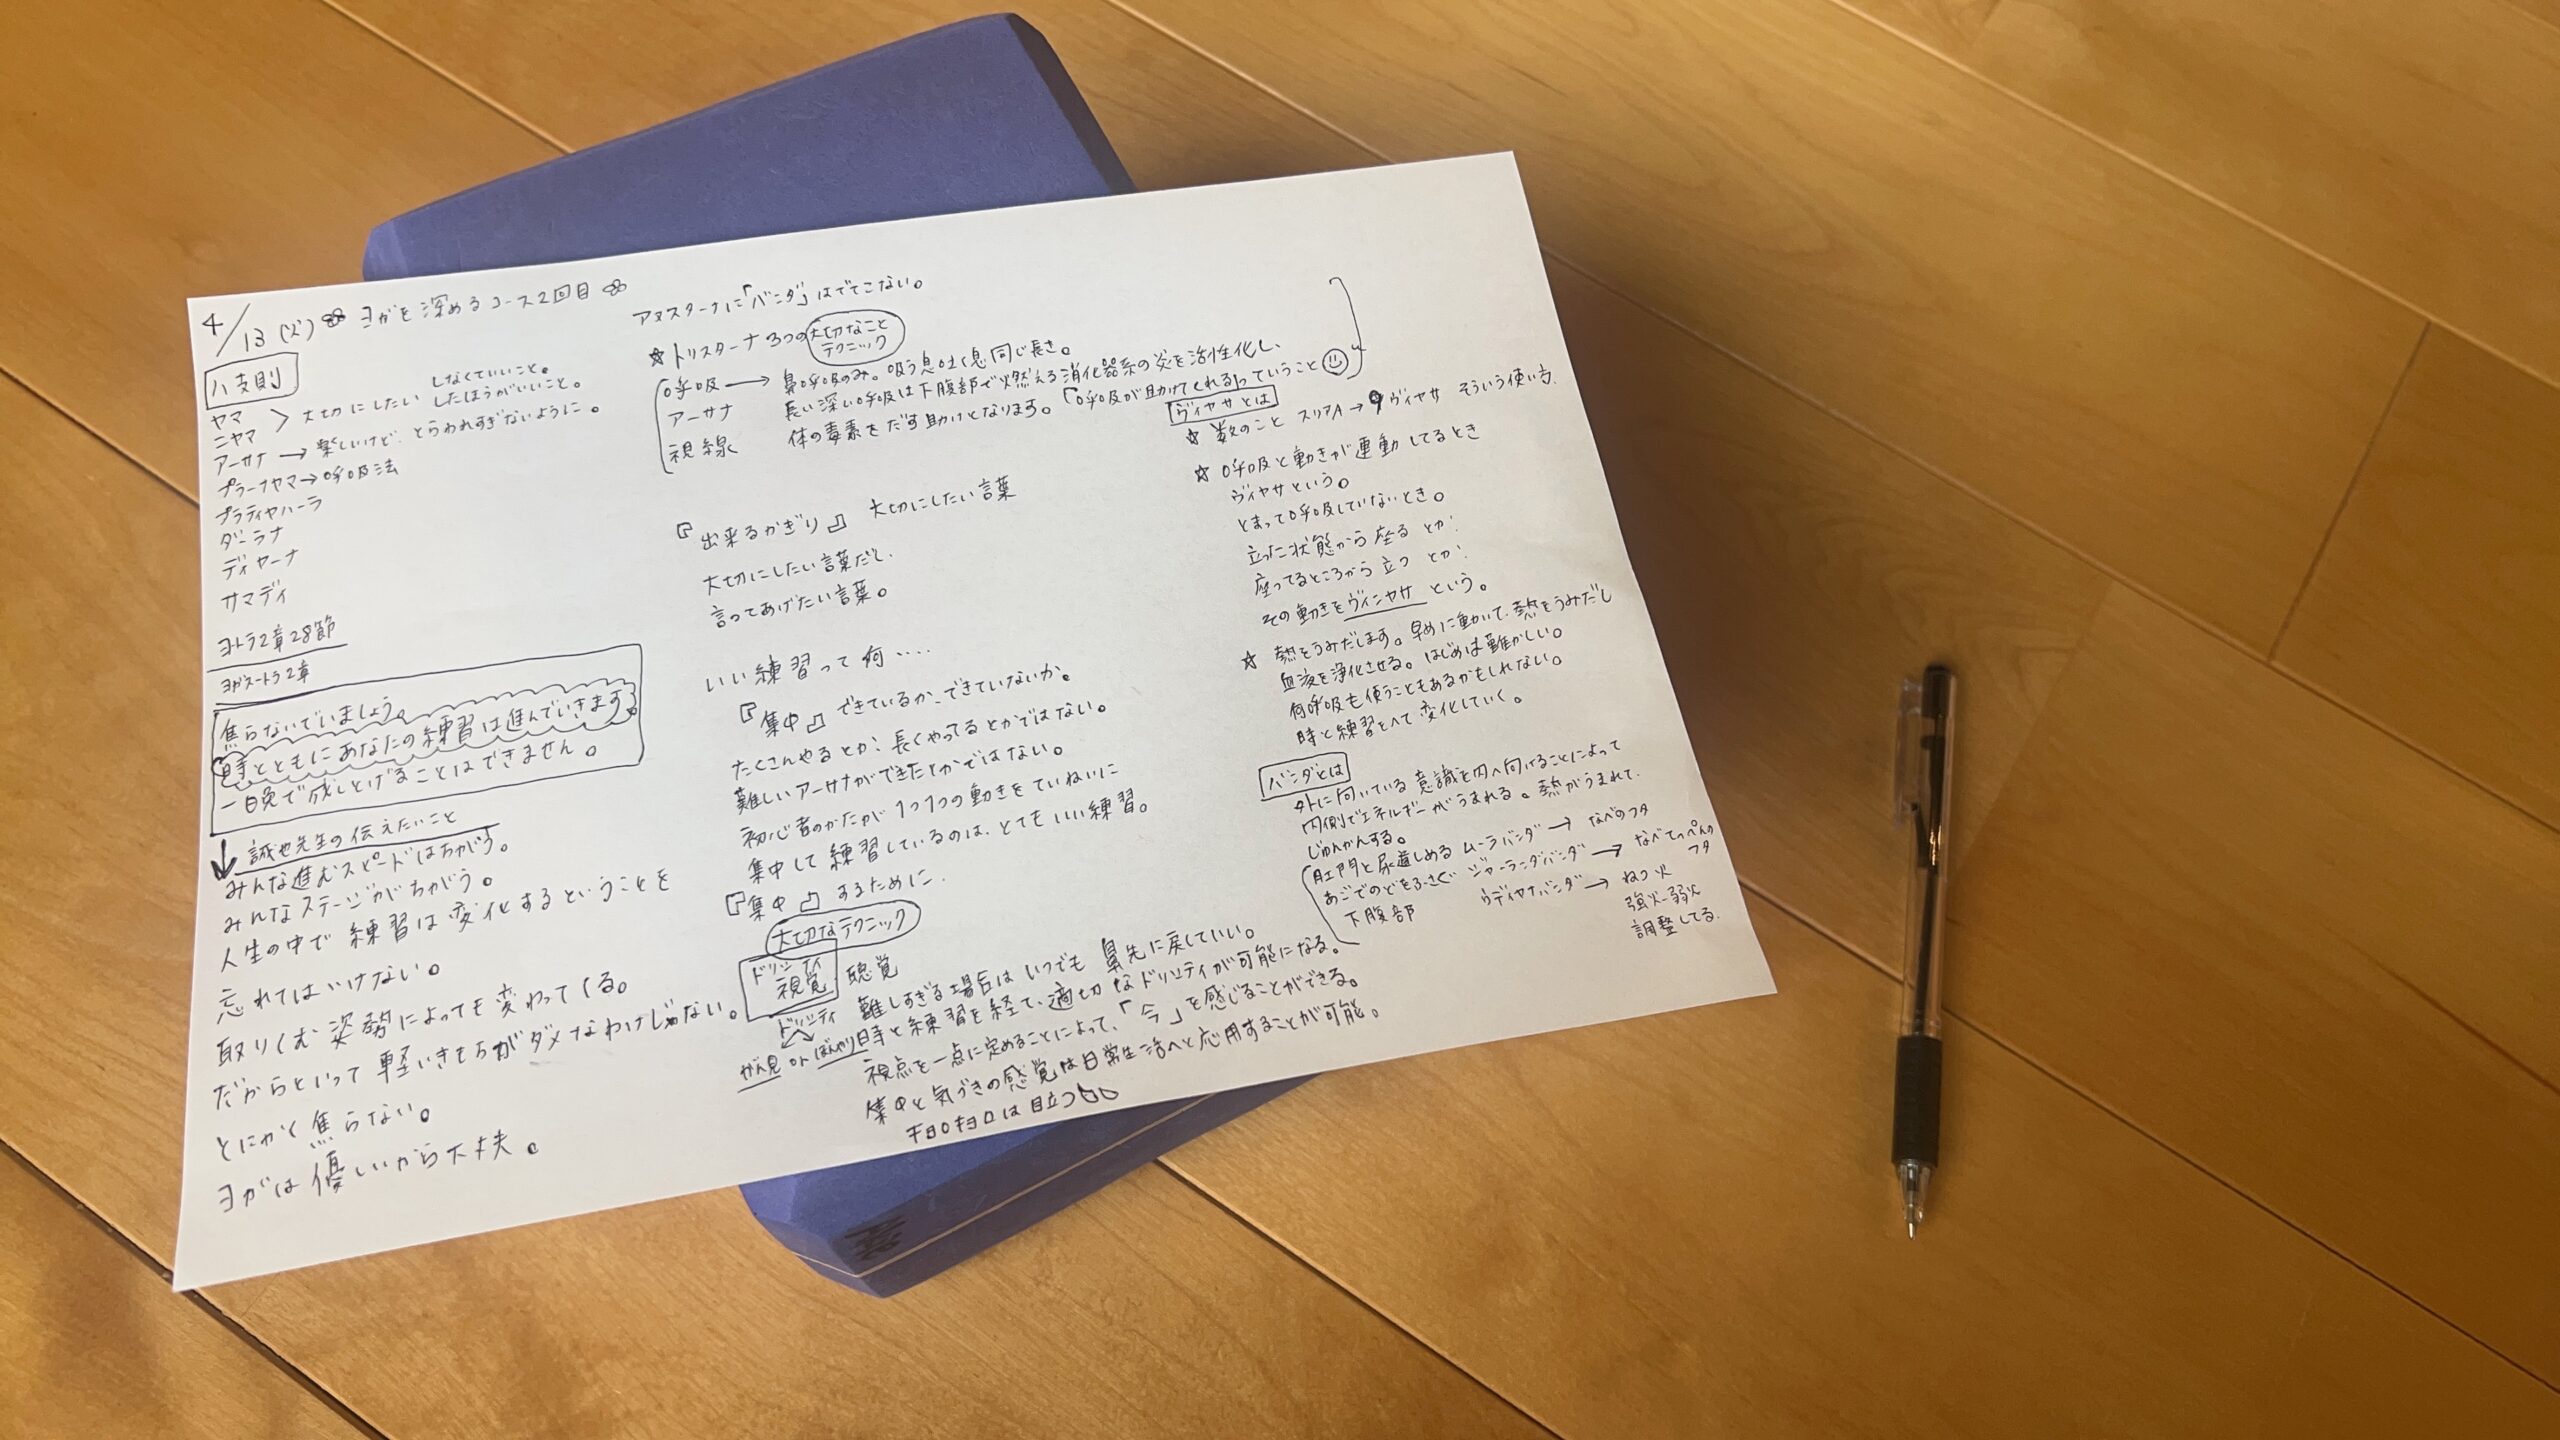 4/13(火) ヨガを深めるコース2回目
八支則
しなくていいこと。
ヤマ
ニヤマ > 大切にしたい したほうがいいこと。
アーサナ → 楽しいけど、とらわれすぎないように。
プラーナヤマ→呼吸法
プラティヤハーラ
ダーラナ
ディヤーナ
サマディ
ヨートラ2章28節
ヨガスートラ2章
焦らないでいましょう。
時とともにあなたの練習は進んでいきます。
一晩で成しとげることはできません。
誠也先生の伝えたいこと
↓
みんな進むスピードはちがう。
みんなステージがちがう。
人生の中で練習は変化するということを
忘れてはいけない。
取りくむ姿勢によっても変わってくる。
だからといって軽いきもちがダメなわけじゃない。
とにかく焦らない。
ヨガは優しいから大丈夫。
アヌスターナに「バンダ」はでてこない。
☆トリスターナ 3つの大切なこと
テクニック
呼吸 → 鼻呼吸のみ。吸う息吐く息同じ長さ。
アーサナ 長い深い呼吸は下腹部で燃える消化器系の炎を活性化し、
視線 体の毒素をだす助けとなります。「呼吸が助けてくれる」っていうこと
『出来るかぎり』 大切にしたい言葉
大切にしたい言葉だし、
言ってあげたい言葉。
いい練習って何‥‥
『集中』できているか、できていないか。
たくさんやるとか、長くやってるとかではない。
難しいアーサナができたとかではない。
初心者のかたが1つ1つの動きをていねいに
集中して練習しているのは、とてもいい練習。
『集中』するために、
大切なテクニック
ドリシティ
視覚 聴覚
ドリシティ
がん見 or ぼんやり
難しすぎる場合はいつでも鼻先に戻していい。
時と練習を経て、適切なドリシティが可能になる。
視点を一点に定めることによって、「今」を感じることができる。
集中と気づきの感覚は日常生活へと応用することが可能。
キョロキョロは目立つ
ヴィヤサとは
☆ 数のこと スリアA→9ヴィヤサ そういう使い方。
☆ 呼吸と動きが連動してるとき
ヴィヤサという。
とまって呼吸していないとき。
立った状態から座るとか、
座ってるところから立つとか、
その動きをヴィンヤサという。
☆ 熱をうみだします。早めに動いて、熱をうみだし
血液を浄化させる。はじめは難かしい。
何呼吸も使うこともあるかもしれない。
時と練習をへて変化していく。
バンダとは
外に向いている意識を内へ向けることによって
内側でエネルギーがうまれる。熱がうまれて、
じゅんかんする。
肛門と尿道しめる ムーラバンダ → なべのフタ
あごでのどをふさぐ ジャーランダバンダ → なべてっぺんの
フタ
下腹部 ウディヤナバンダ → ねつ火
強火-弱火
調整してる。